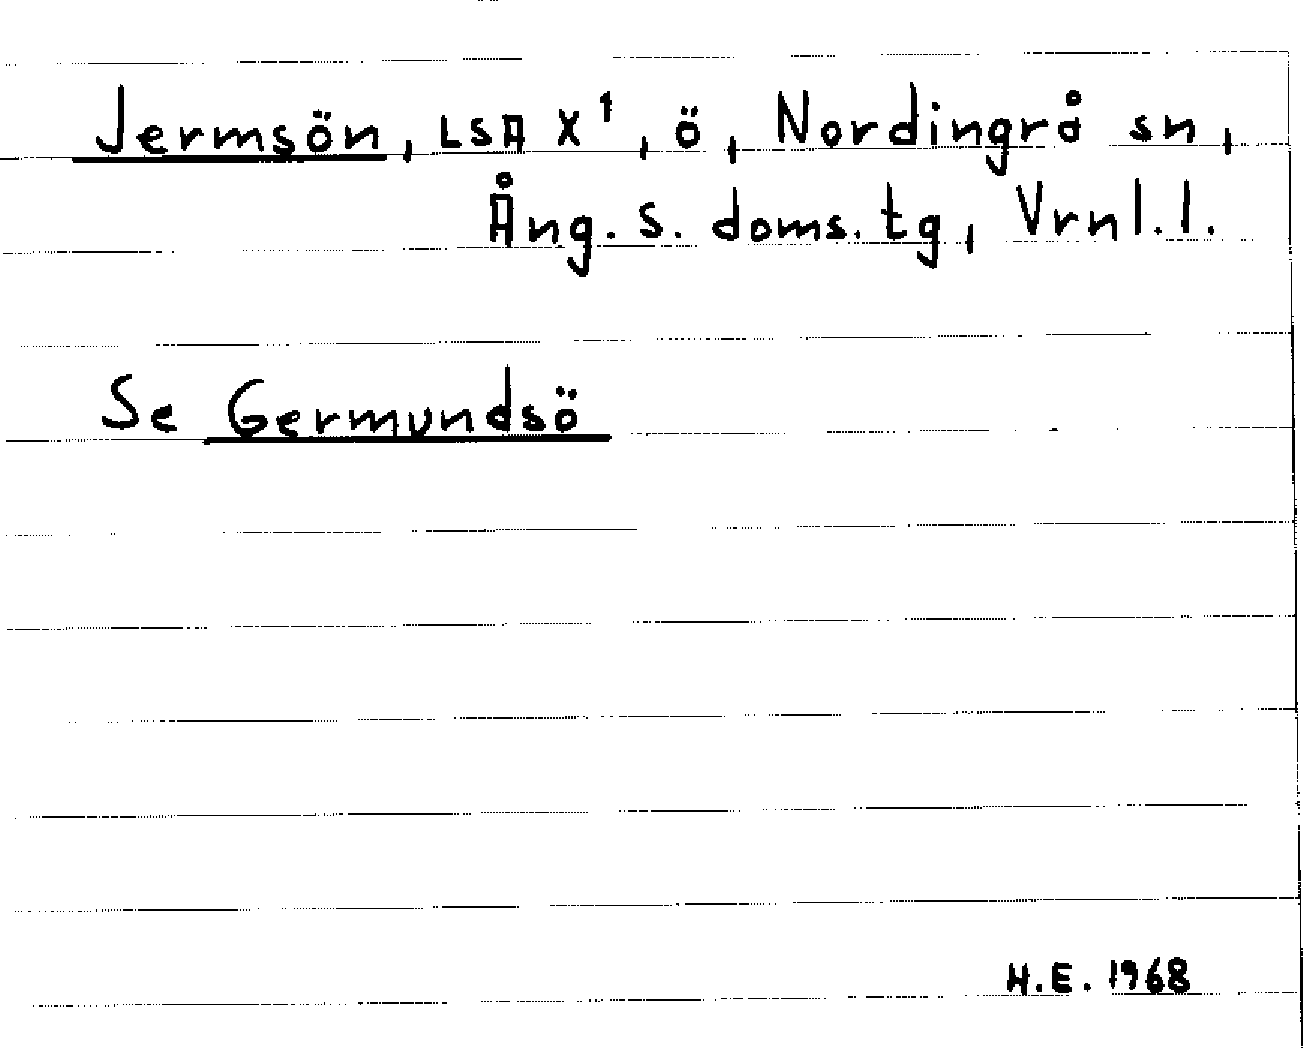 Jermsön, LSA X¹, ö, Nordingrå sn,
Ång. s. doms. tg, Vrnl. l.
Se Germundsö
H.E. 1968